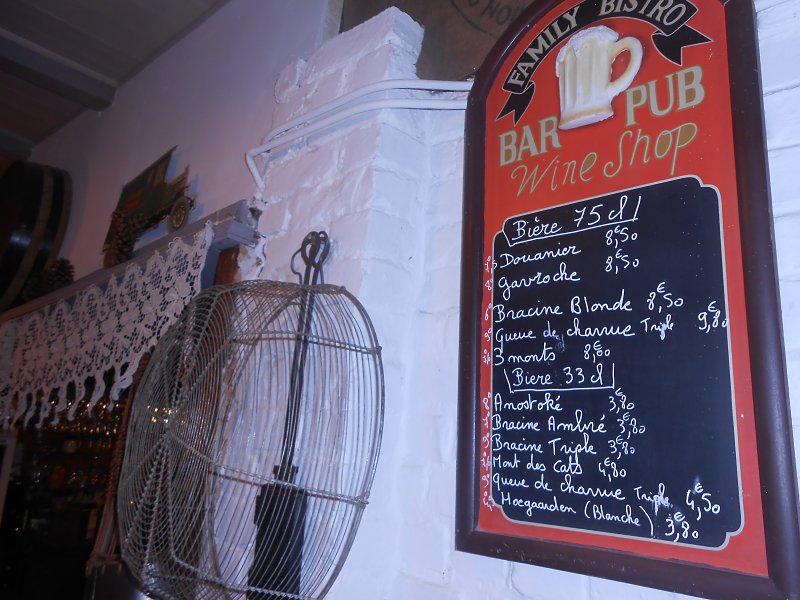 FAMILY BISTRO
BAR PUB
Wine Shop
Bière 75 cl
Douanier 8€50
Gavroche 8€50
Bracine Blonde 8€50
Queue de charrue Triple 9€80
3 monts 8€00
Bière 33 cl
Anostoké 3€80
Bracine Ambré 3€80
Bracine Triple 3€80
Mont des Cats 4€80
Queue de charrue Triple 4€50
Hoegaarden (Blanche) 3€80